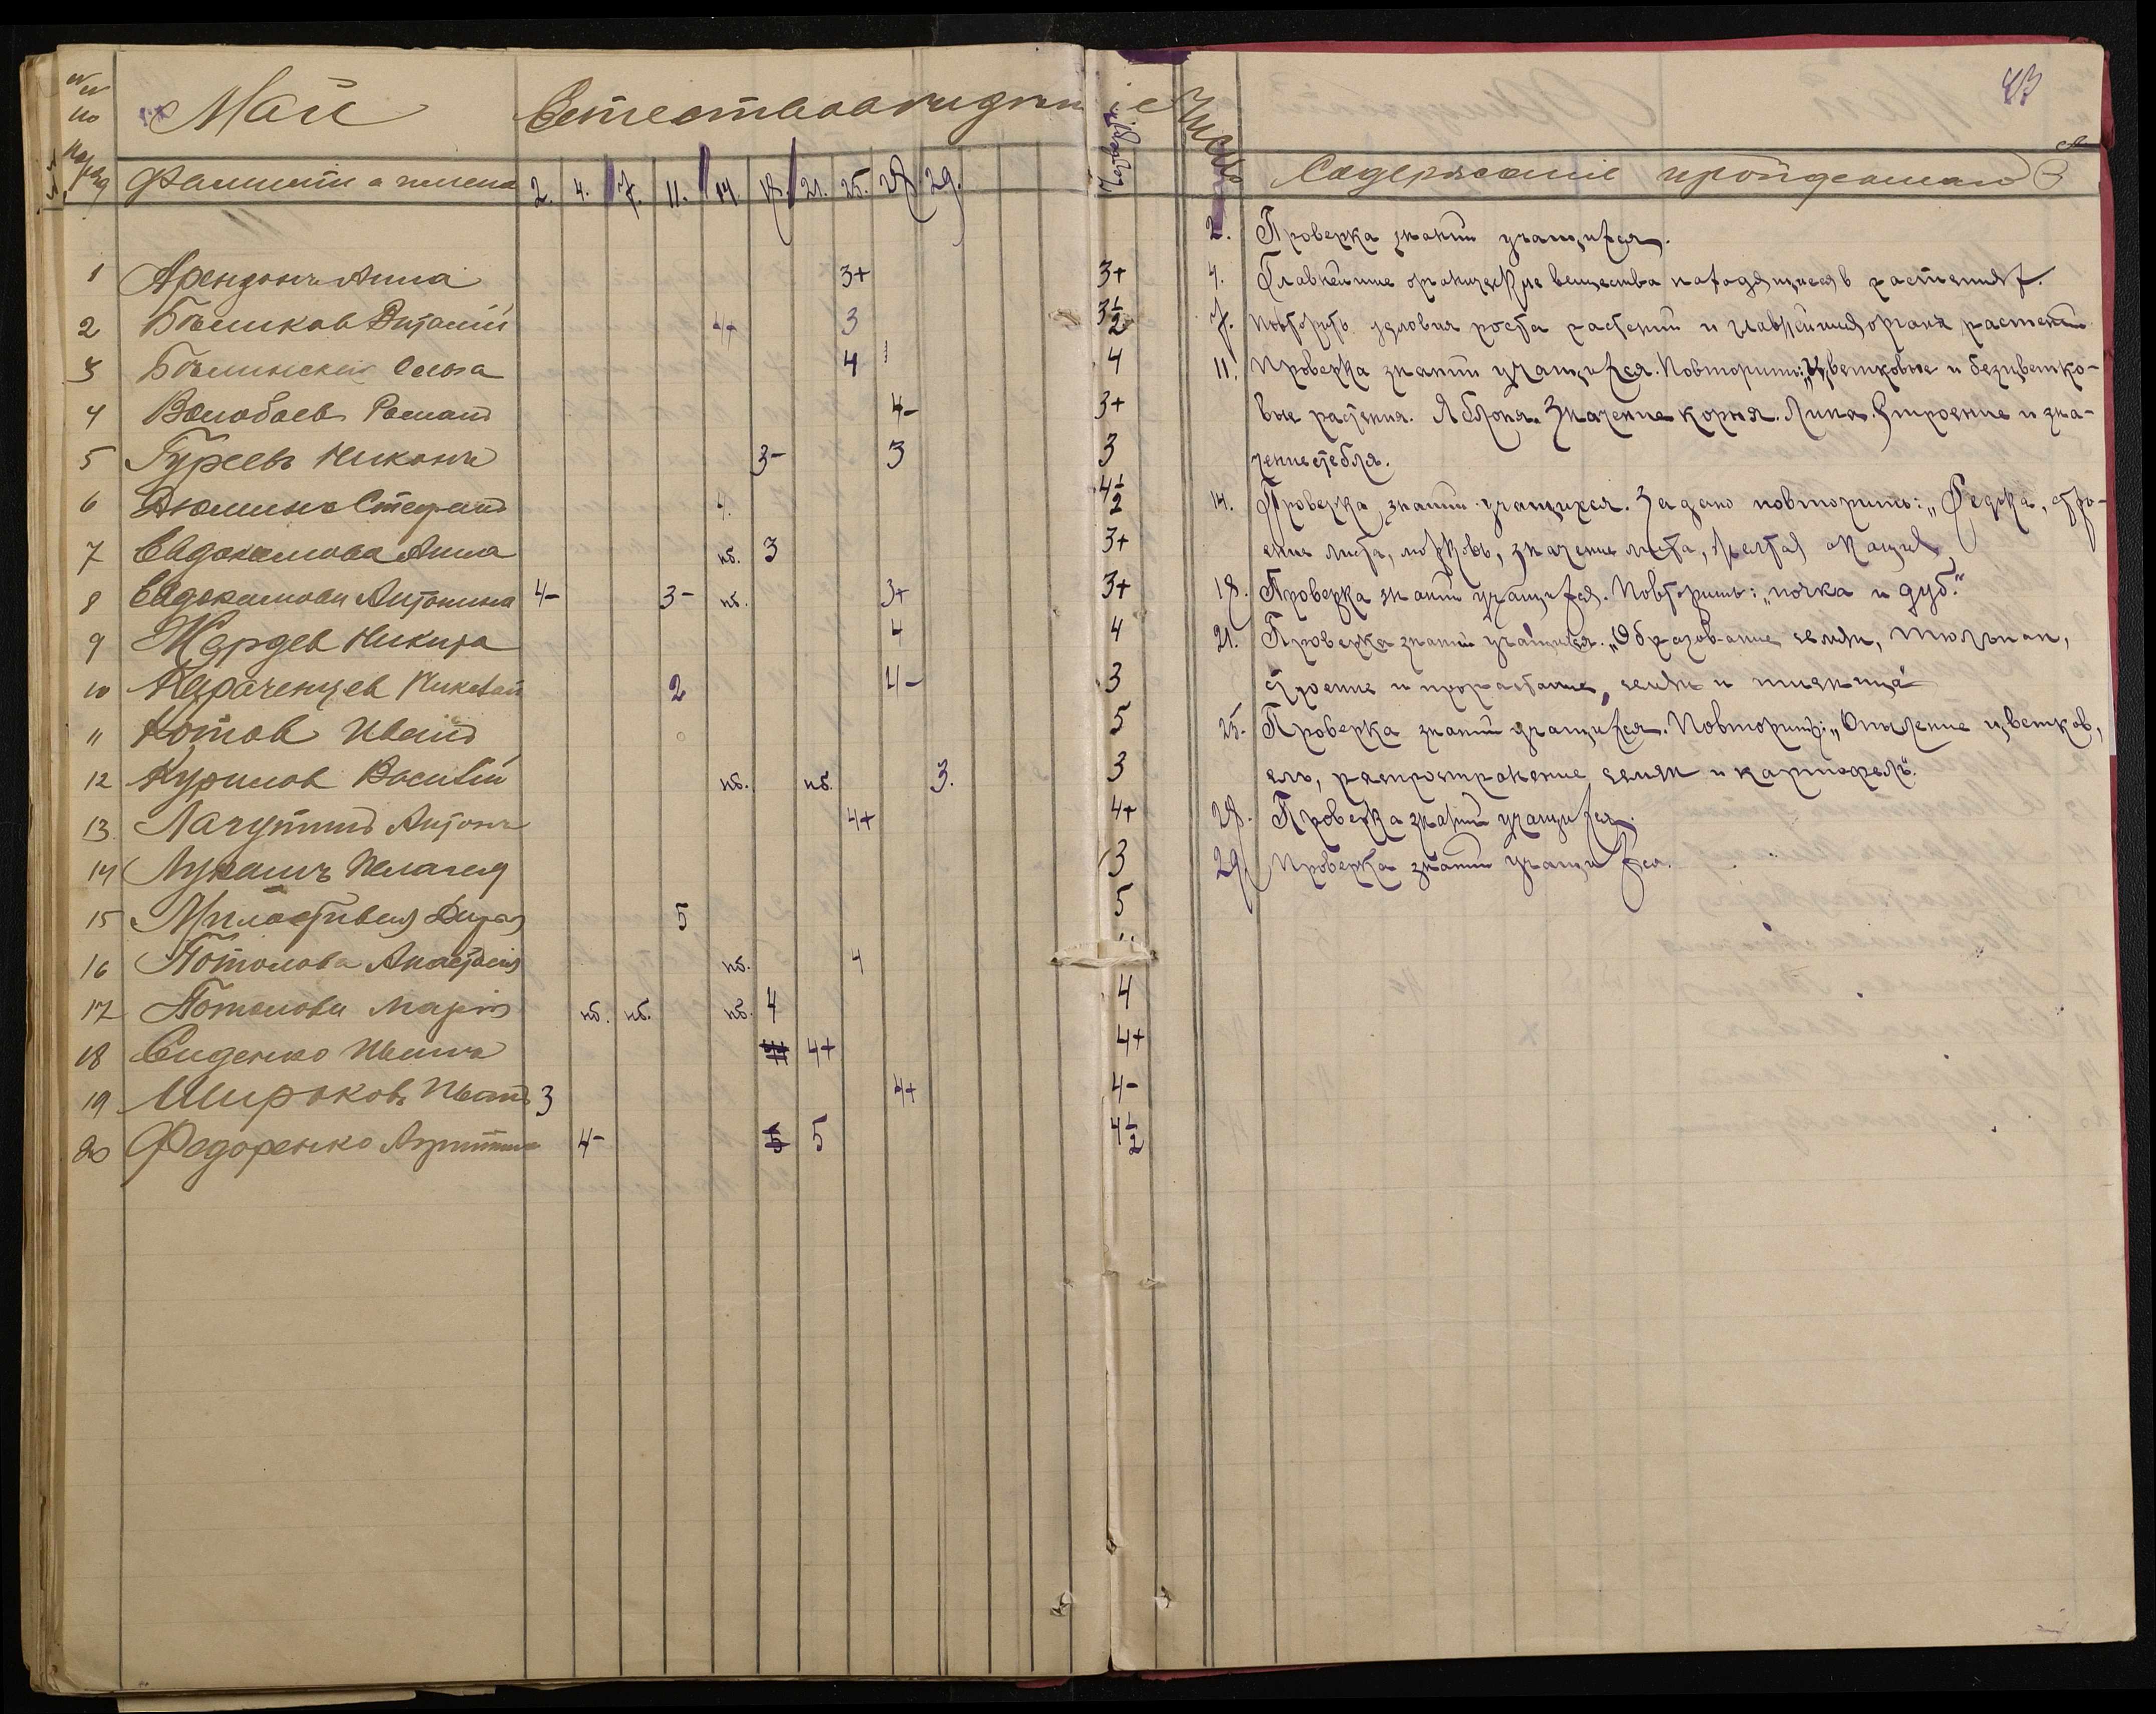 №№ по
Май Естествоведение
Фамилии и имена 2. 4. 7. 11. 14. 18. 21. 25. 28 29.
1 Арендарь Анна 3+ 3+
2 Бѣликов Виталий 4+ 3 3½
3 Бѣлинская 4 4
4 Волобоев Роман 4- 3+
5 Гуреевъ Никонъ 3- 3 3
6 Дюмина 4. 4½
7 Евдокимова Анна нб. 3 3+
8 Евдокимова Антонина 4- 3- нб. 3+ 3+
9 Жердев Никита 4 4
10 Караченцев Николай 2 4- 3
11 Котов Иван 5
12 Курилов Василий нб. нб. 3. 3
13. Лагутин Антонъ 4+ 4+
14 Пелагея 3
15 Милостивая 5 5
16 Потолова Анастасия нб. 4
17 Потолова Мария нб. нб. нб. 4 4
18 Сиденко 4+ 4+ 4+
19 Широковъ Иван 3 4+ 4-
20 Федоренко 4- 5 5 4½
43
Число Содержание пройденнаго
2. Проверка знаний учащихся.
4. Главнейшие органические вещества находящиеся в растениях.
7. Повторить условия роста растений и главнейшия органа растений
11. Проверка знаний учащихся. Повторить: „Цветковые и безцветко-
вые растения. Яблоня. Значение корня. Липа. Строение и зна-
чение стебля.
14. Проверка знаний учащихся. Задано повторить: „Редька, стро-
ение листа, морковь, значение листа, желтая акация
18. Проверка знаний учащихся. Повторить: „почка и дуб."
21. Проверка знаний учащихся. „Образование семян, тюльпан,
строение и прорастание, семян и пшеница"
25. Проверка знаний учащихся. Повторить: „Опыление цветков,
ель, распространение семян и картофель".
28. Проверка знаний учащихся.
29. Проверка знаний учащихся.